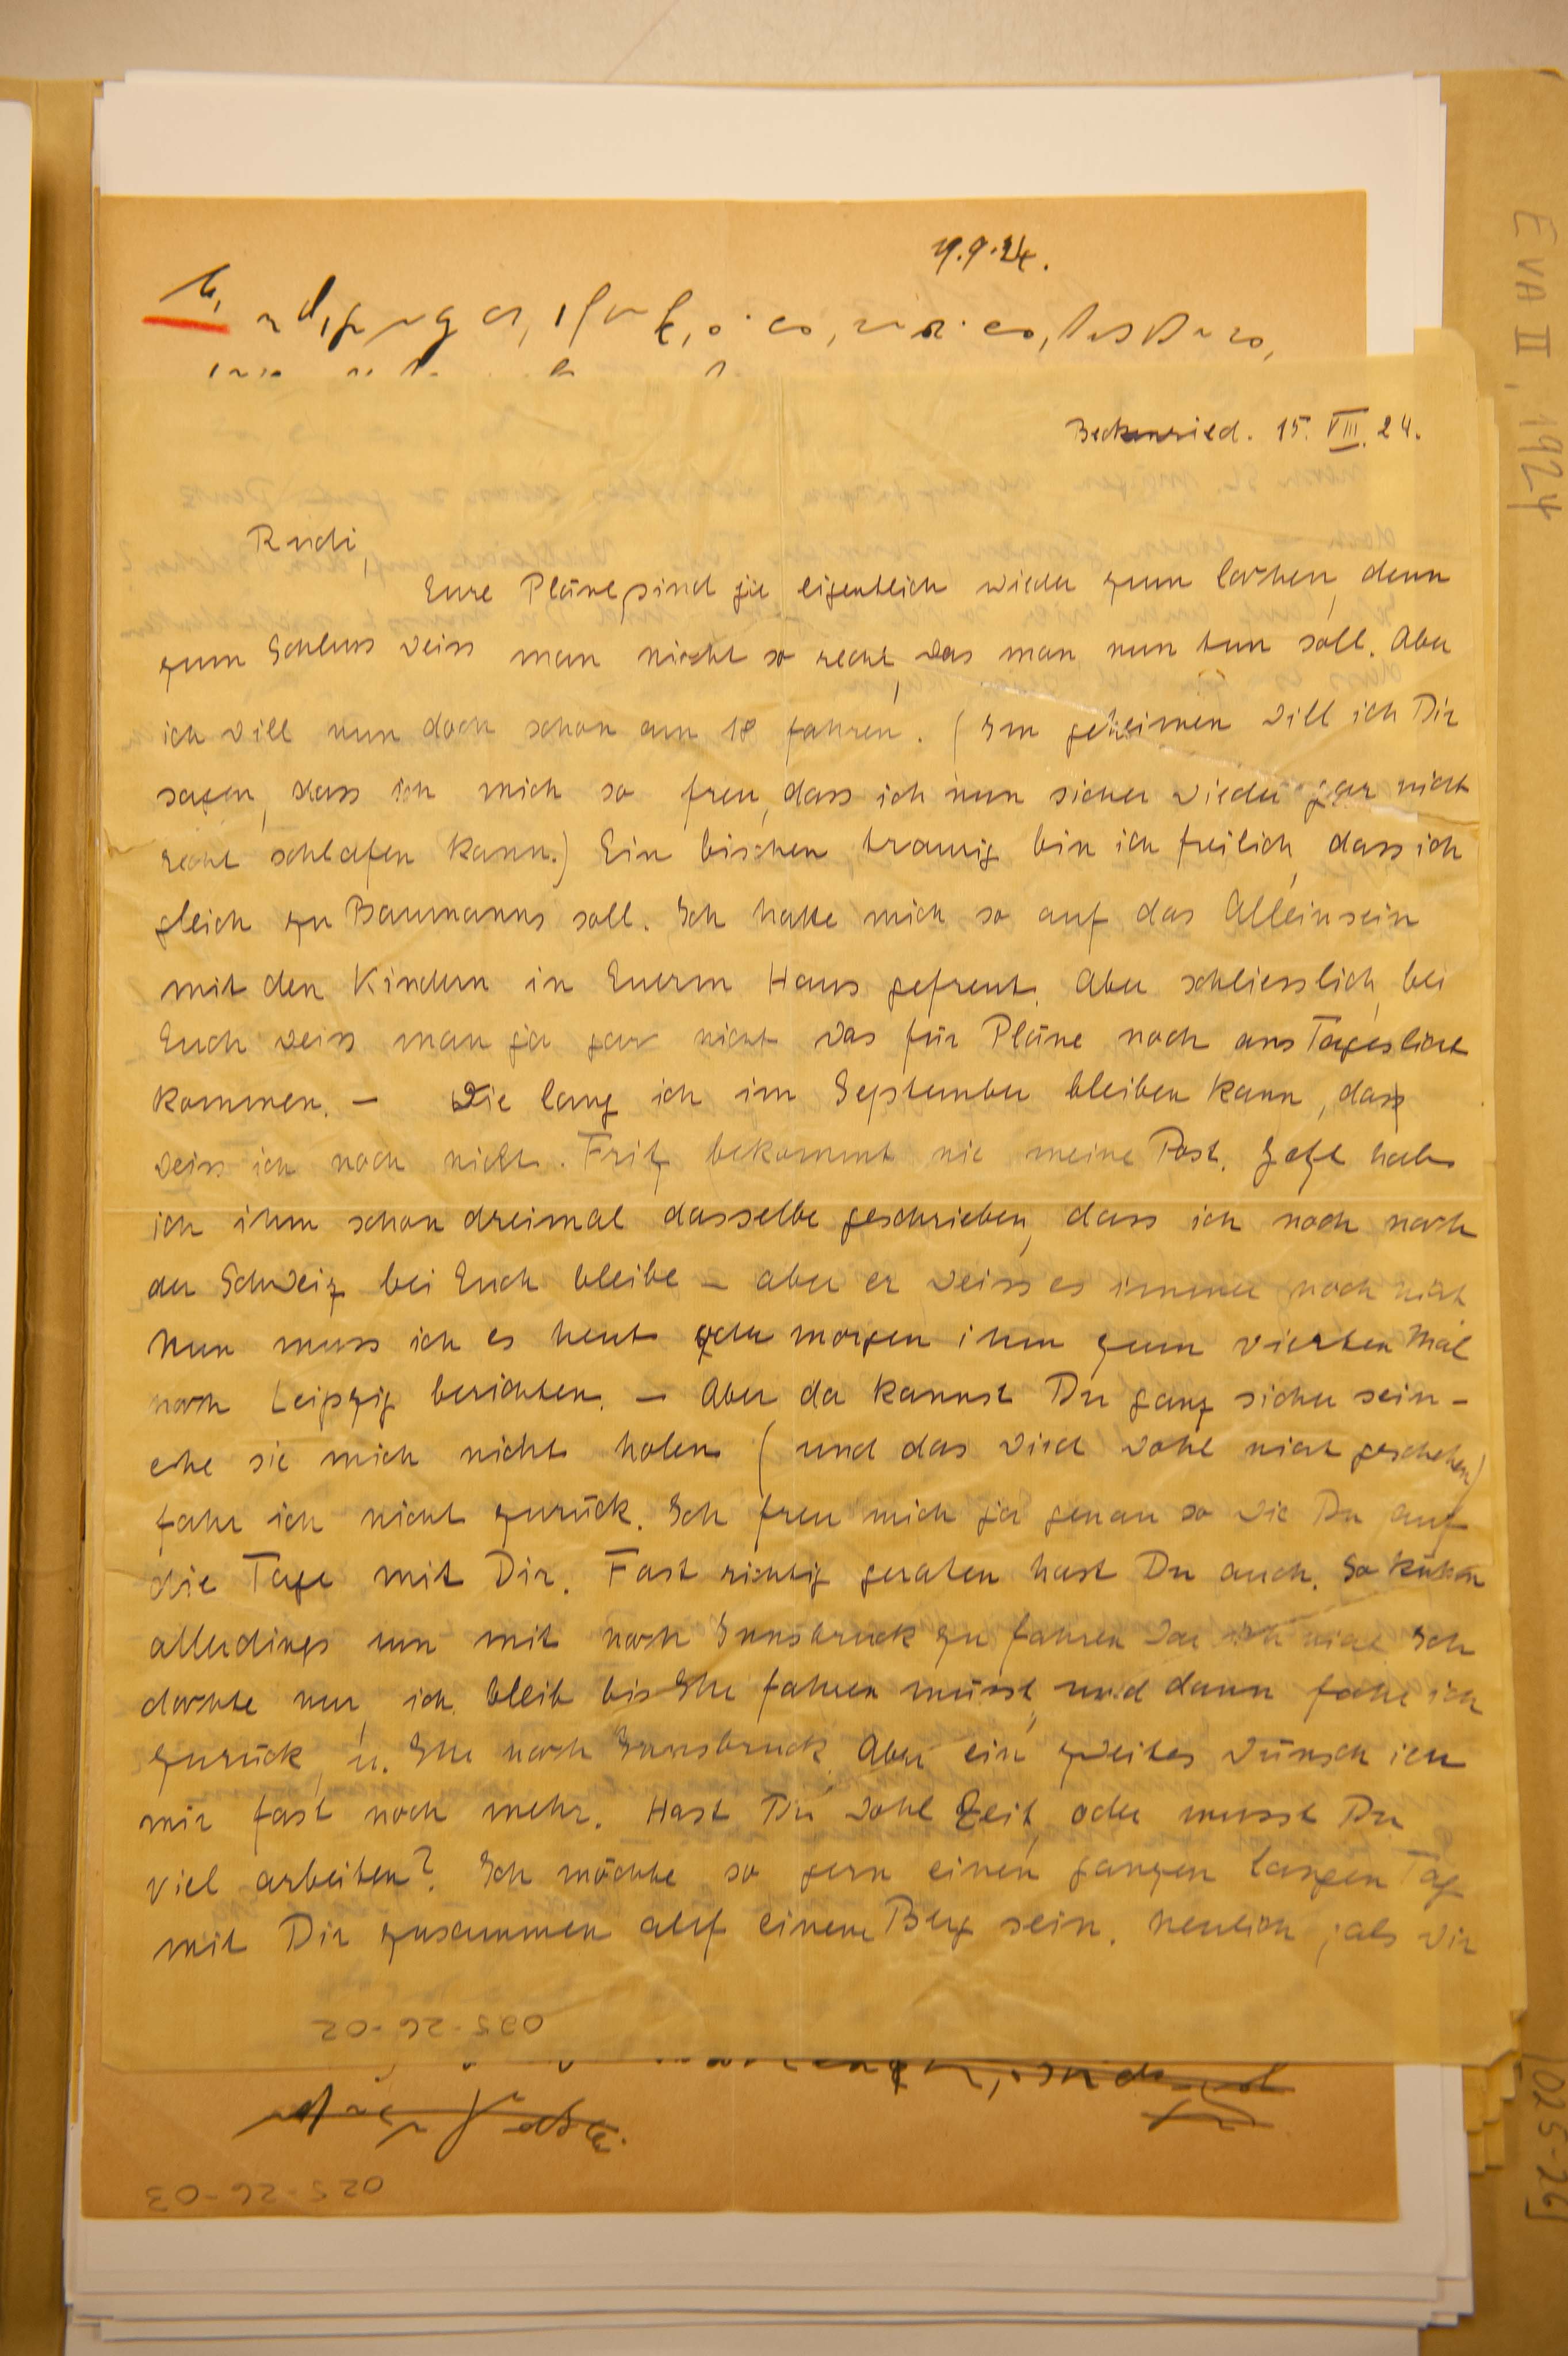 19.9.24.
Beckenried. 15. VIII. 24.
Rudi,
Eure Pläne sind ja eigentlich wieder zum lachen, denn
zum Schluss weiss man nicht so recht, was man nun tun soll. Aber
ich will nun doch schon am 18 fahren. (Im geheimen will ich Dir
sagen, dass ich mich so freu, dass ich nun sicher wieder gar nicht
recht schlafen kann.) Ein bischen traurig bin ich freilich, dass ich
gleich zu Baumanns soll. Ich hatte mich so auf das Alleinsein
mit den Kindern in Euerm Haus gefreut. Aber schliesslich, bei
Euch weiss man ja gar nicht was für Pläne noch ans Tageslicht
kommen. – Wie lang ich im September bleiben kann, das
weiss ich noch nicht. Fritz bekommt nie meine Post. Jetzt habe
ich ihm schon dreimal dasselbe geschrieben, dass ich noch nach
der Schweiz bei Euch bleibe – aber er weiss es immer noch nicht
Nun muss ich es heute oder morgen ihm zum vierten Mal
nach Leipzig berichten. – Aber da kannst Du ganz sicher sein –
ehe sie mich nicht holen (und das wird wohl nicht geschehen)
fahr ich nicht zurück. Ich freu mich ja genau so wie Du auf
die Tage mit Dir. Fast richtig geraten hast Du auch. So kühn
allerdings um mit nach Innsbruck zu fahren war ich nicht. Ich
dachte nur, ich bleib bis Ihr fahren müsst, und dann fahr ich
zurück, u. Ihr nach Innsbruck. Aber ein zweites wünsch ich
mir fast noch mehr. Hast Du wohl Zeit, oder musst Du
viel arbeiten? Ich möchte so gern einen ganzen langen Tag
mit Dir zusammen auf einem Berg sein. Neulich, als wir
025-26-02
025-26-03
EVA II, 1924
[025-26]